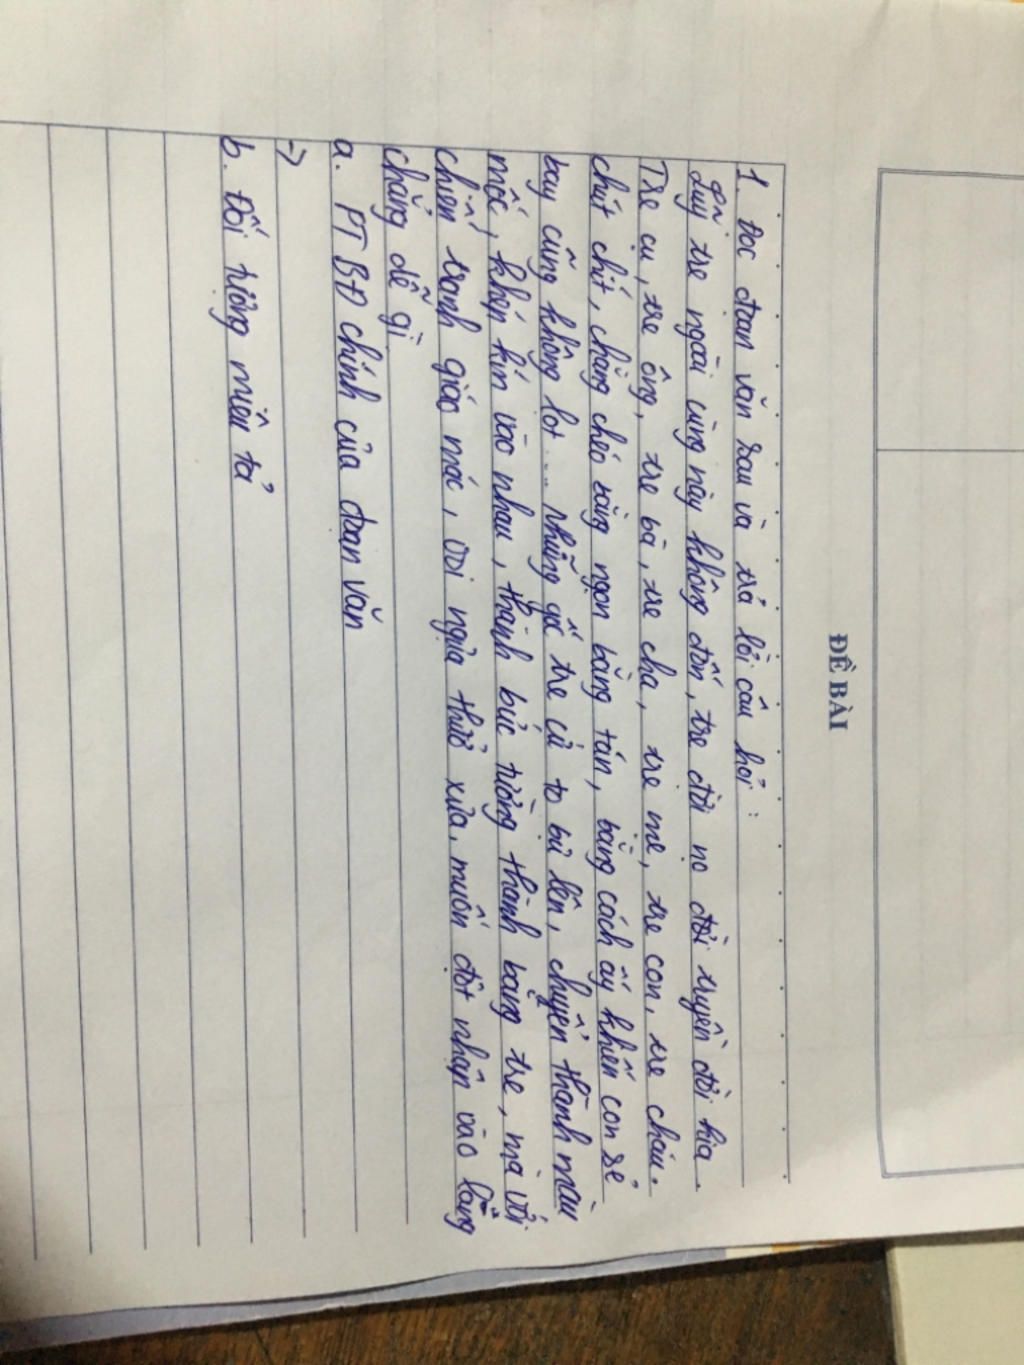 ĐỀ BÀI
1. Đọc đoạn văn sau và trả lời câu hỏi :
Luỹ tre ngoài cùng này không đốn, tre đời nọ đời truyền đời kia.
Tre cụ, tre ông, tre bà, tre cha, tre mẹ, tre con, tre cháu.
chút chít, chằng chéo bằng ngọn bằng tán, bằng cách ấy khiến con sẻ
bay cũng không lọt ... Những gốc tre cứ to bự lên, chuyển thành màu
mốc, khép kín vào nhau, thành bức tường thành bằng tre, mà với
chiến tranh giáo mác, voi ngựa thưở xưa, muốn đột nhập vào làng
chẳng dễ gì.
a. PTBĐ chính của đoạn văn
->
b. Đối tượng miêu tả